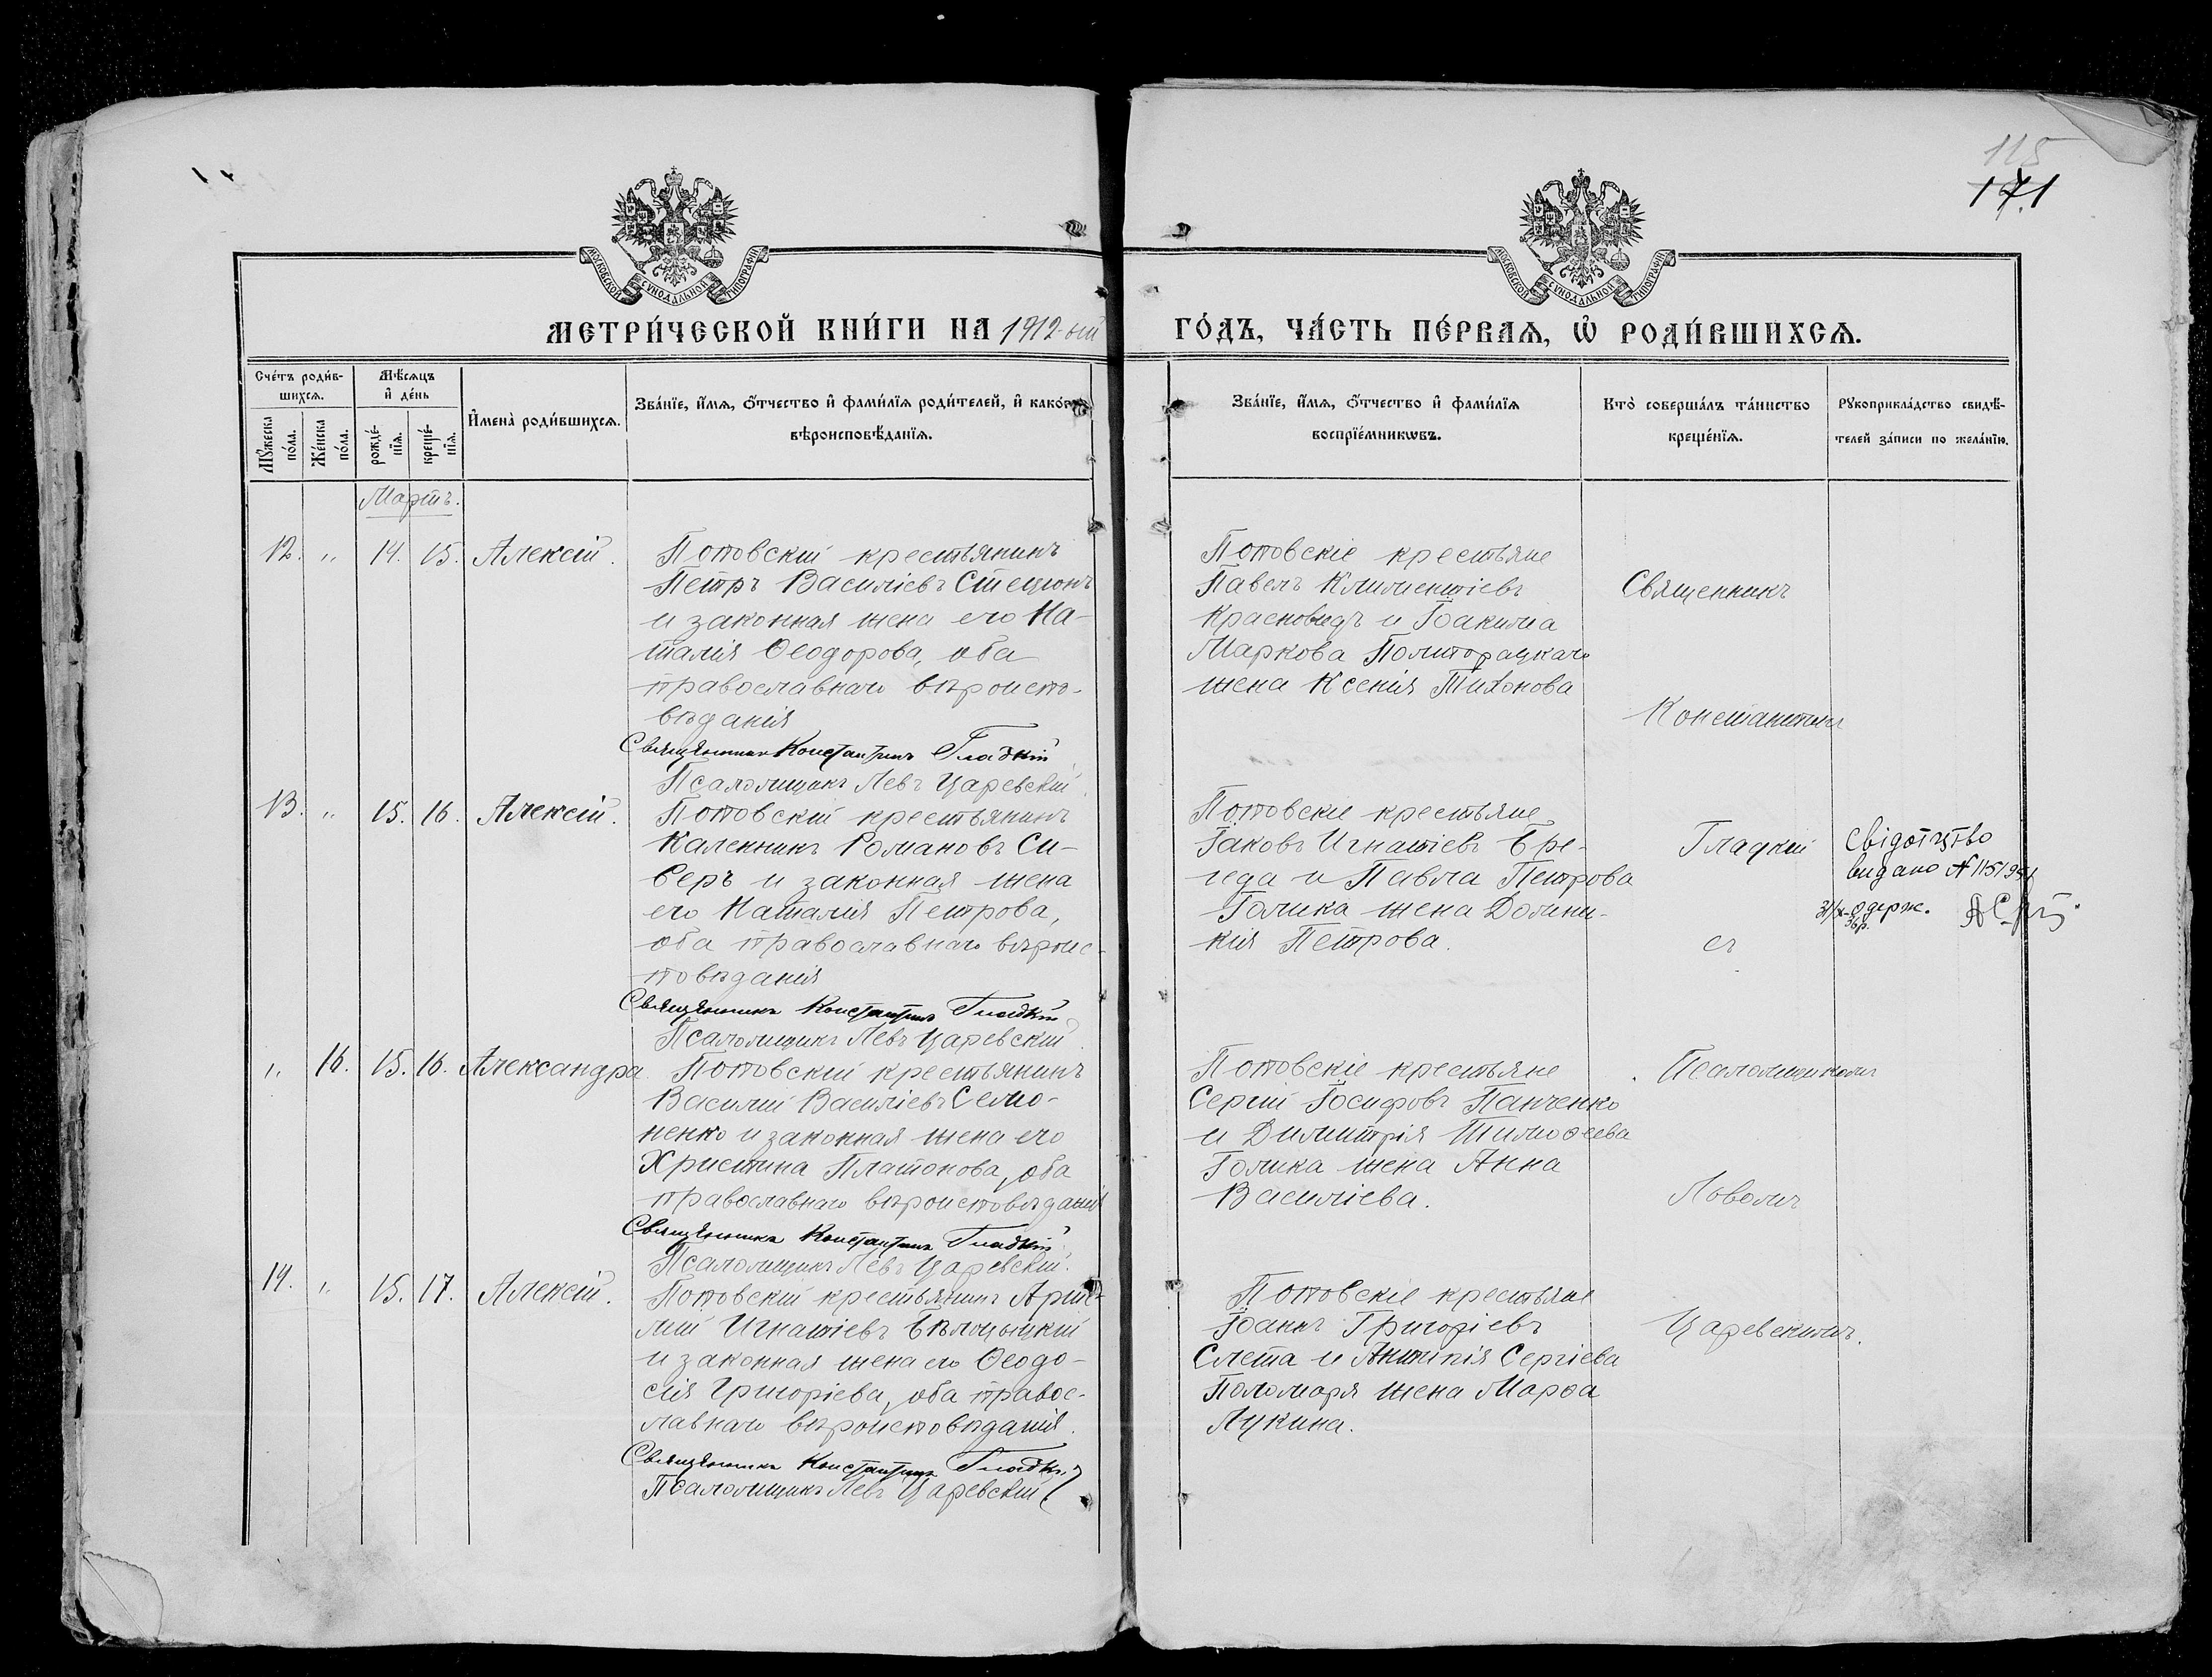 115
171
МОСКОВСКОЙ СѴНОДАЛЬНОЙ ТИПОГРАФІИ
МОСКОВСКОЙ СѴНОДАЛЬНОЙ ТИПОГРАФІИ
МЕТРИ́ЧЕСКОЙ КНИ́ГИ НА 1912-ый ГО́ДЪ, ЧА́СТЬ ПЕ́РВАѦ, Ѡ РОДИ́ВШИХСѦ.
Сче́тъ роди́в-
шихсѧ.
Мѣ́сѧцъ
и де́нь
Мꙋжеска
по́ла.
Же́нска
по́ла.
рожде́-
нїѧ.
креще́-
нїѧ.
Имена̀ роди́вшихсѧ.
Зва́нїе, и́мѧ, ѻ́тчество и фами́лїѧ роди́телей, и како́гѡ
вѣроисповѣ́данїѧ.
Зва́нїе, и́мѧ, ѻ́тчество и фами́лїѧ
воспрїе́мникѡвъ.
Кто̀ соверша́лъ та́инство
креще́нїѧ.
Рꙋкоприкла́дство свидѣ́-
телей за́писи по жела́нїю.
Мартъ.
12. " 14. 15. Алексій.
Поповскій крестьянинъ
Петръ Василіевъ Стецюнъ
и законная жена его На-
талія Ѳеодорова, оба
православнаго вѣроиспо-
вѣданія
Священникъ Константинъ Гладкій
Псаломщикъ Левъ Царевскій.
Поповскіе крестьяне
Павелъ Климентіевъ
Красновидъ и Іоакима
Маркова Полторацкаго
жена Ксенія Тихонова
Священникъ
Константинъ
13. " 15. 16. Алексій.
Поповскій крестьянинъ
Каленникъ Романовъ Си-
веръ и законная жена
его Наталія Петрова,
оба православнаго вѣроис-
повѣданія
Священникъ Константинъ Гладкій
Псаломщикъ Левъ Царевскій.
Поповскіе крестьяне
Іаковъ Игнатіевъ Бре-
геда и Павла Петрова
Голика жена Домни-
кія Петрова.
Гладкій
съ
Свідоцтво
видано №
одерж.
" 16. 15. 16. Александра
Поповскій крестьянинъ
Василій Василіевъ Семо-
ненко и законная жена его
Христина Платонова, оба
православнаго вѣроисповѣданія
Священникъ Константинъ Гладкій
Псаломщикъ Левъ Царевскій.
Поповскіе крестьяне
Сергій Іосифовъ Панченко
и Димитрія Тимоѳеева
Голика жена Анна
Василіева.
Псаломщикомъ
Львомъ
14. " 15. 17. Алексій.
Поповскій крестьянинъ Арте-
мій Игнатіевъ Бѣлоцыцкій
и законная жена его Ѳеодо-
сія Григоріева, оба правос-
лавнаго вѣроисповѣданія.
Священникъ Константинъ Гладкій
Псаломщикъ Левъ Царевскій
Поповскіе крестьяне
Іоаннъ Григоріевъ
Слета и Антипія Сергіева
Паламаря жена Марѳа
Лукина.
Царевскимъ.